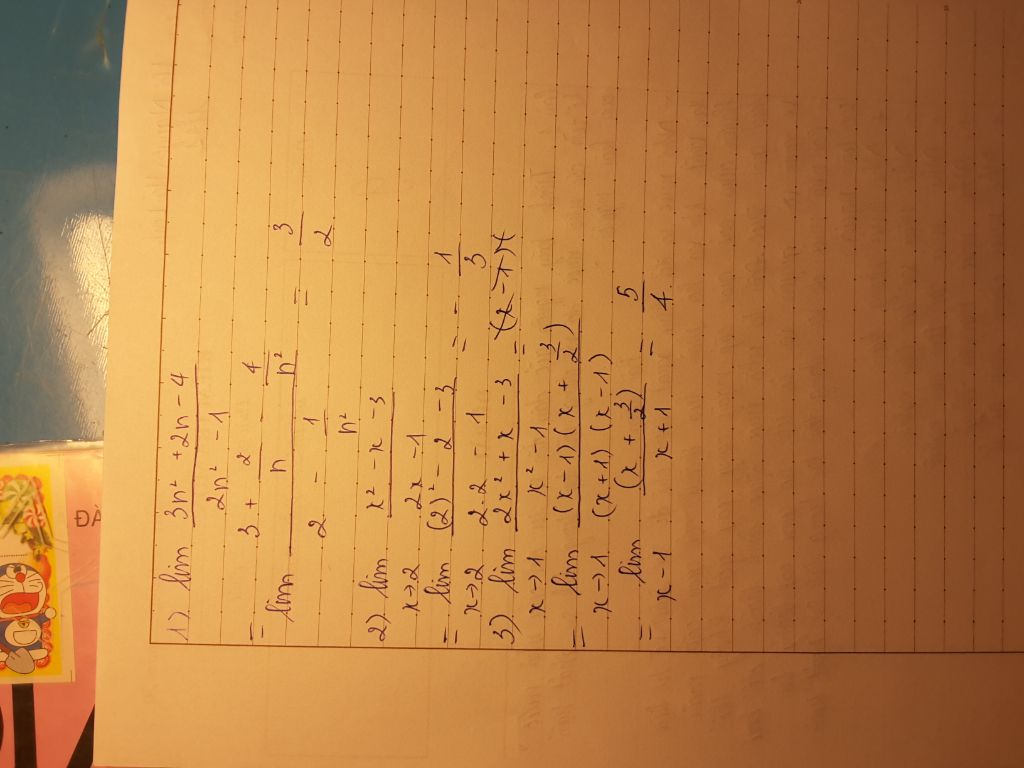 1) lim (3n² + 2n - 4)/(2n² - 1)
= lim (3 + 2/n - 4/n²)/(2 - 1/n²) = 3/2
2) lim x→2 (x² - x - 3)/(2x - 1)
= lim x→2 ((2)² - 2 - 3)/(2.2 - 1) = - 1/3
3) lim x→1 (2x² + x - 3)/(x² - 1) =
= lim x→1 (x - 1)(x + 3/2)/(x + 1)(x - 1)
= lim x-1 (x + 3/2)/(x + 1) = 5/4
ĐÀ